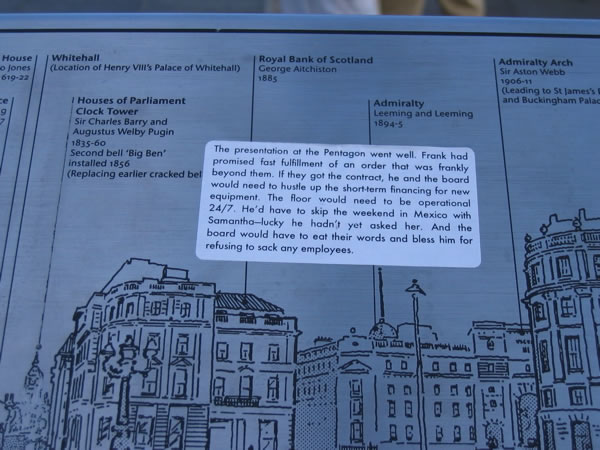 House
o Jones
619-22
Whitehall
(Location of Henry VIII's Palace of Whitehall)
Houses of Parliament
Clock Tower
Sir Charles Barry and
Augustus Welby Pugin
1835-60
Second bell 'Big Ben'
installed 1856
(Replacing earlier cracked bel
Royal Bank of Scotland
George Aitchiston
1885
Admiralty
Leeming and Leeming
1894-5
Admiralty Arch
Sir Aston Webb
1906-11
(Leading to St James's
and Buckingham Palac
The presentation at the Pentagon went well. Frank had
promised fast fulfillment of an order that was frankly
beyond them. If they got the contract, he and the board
would need to hustle up the short-term financing for new
equipment. The floor would need to be operational
24/7. He'd have to skip the weekend in Mexico with
Samantha—lucky he hadn't yet asked her. And the
board would have to eat their words and bless him for
refusing to sack any employees.